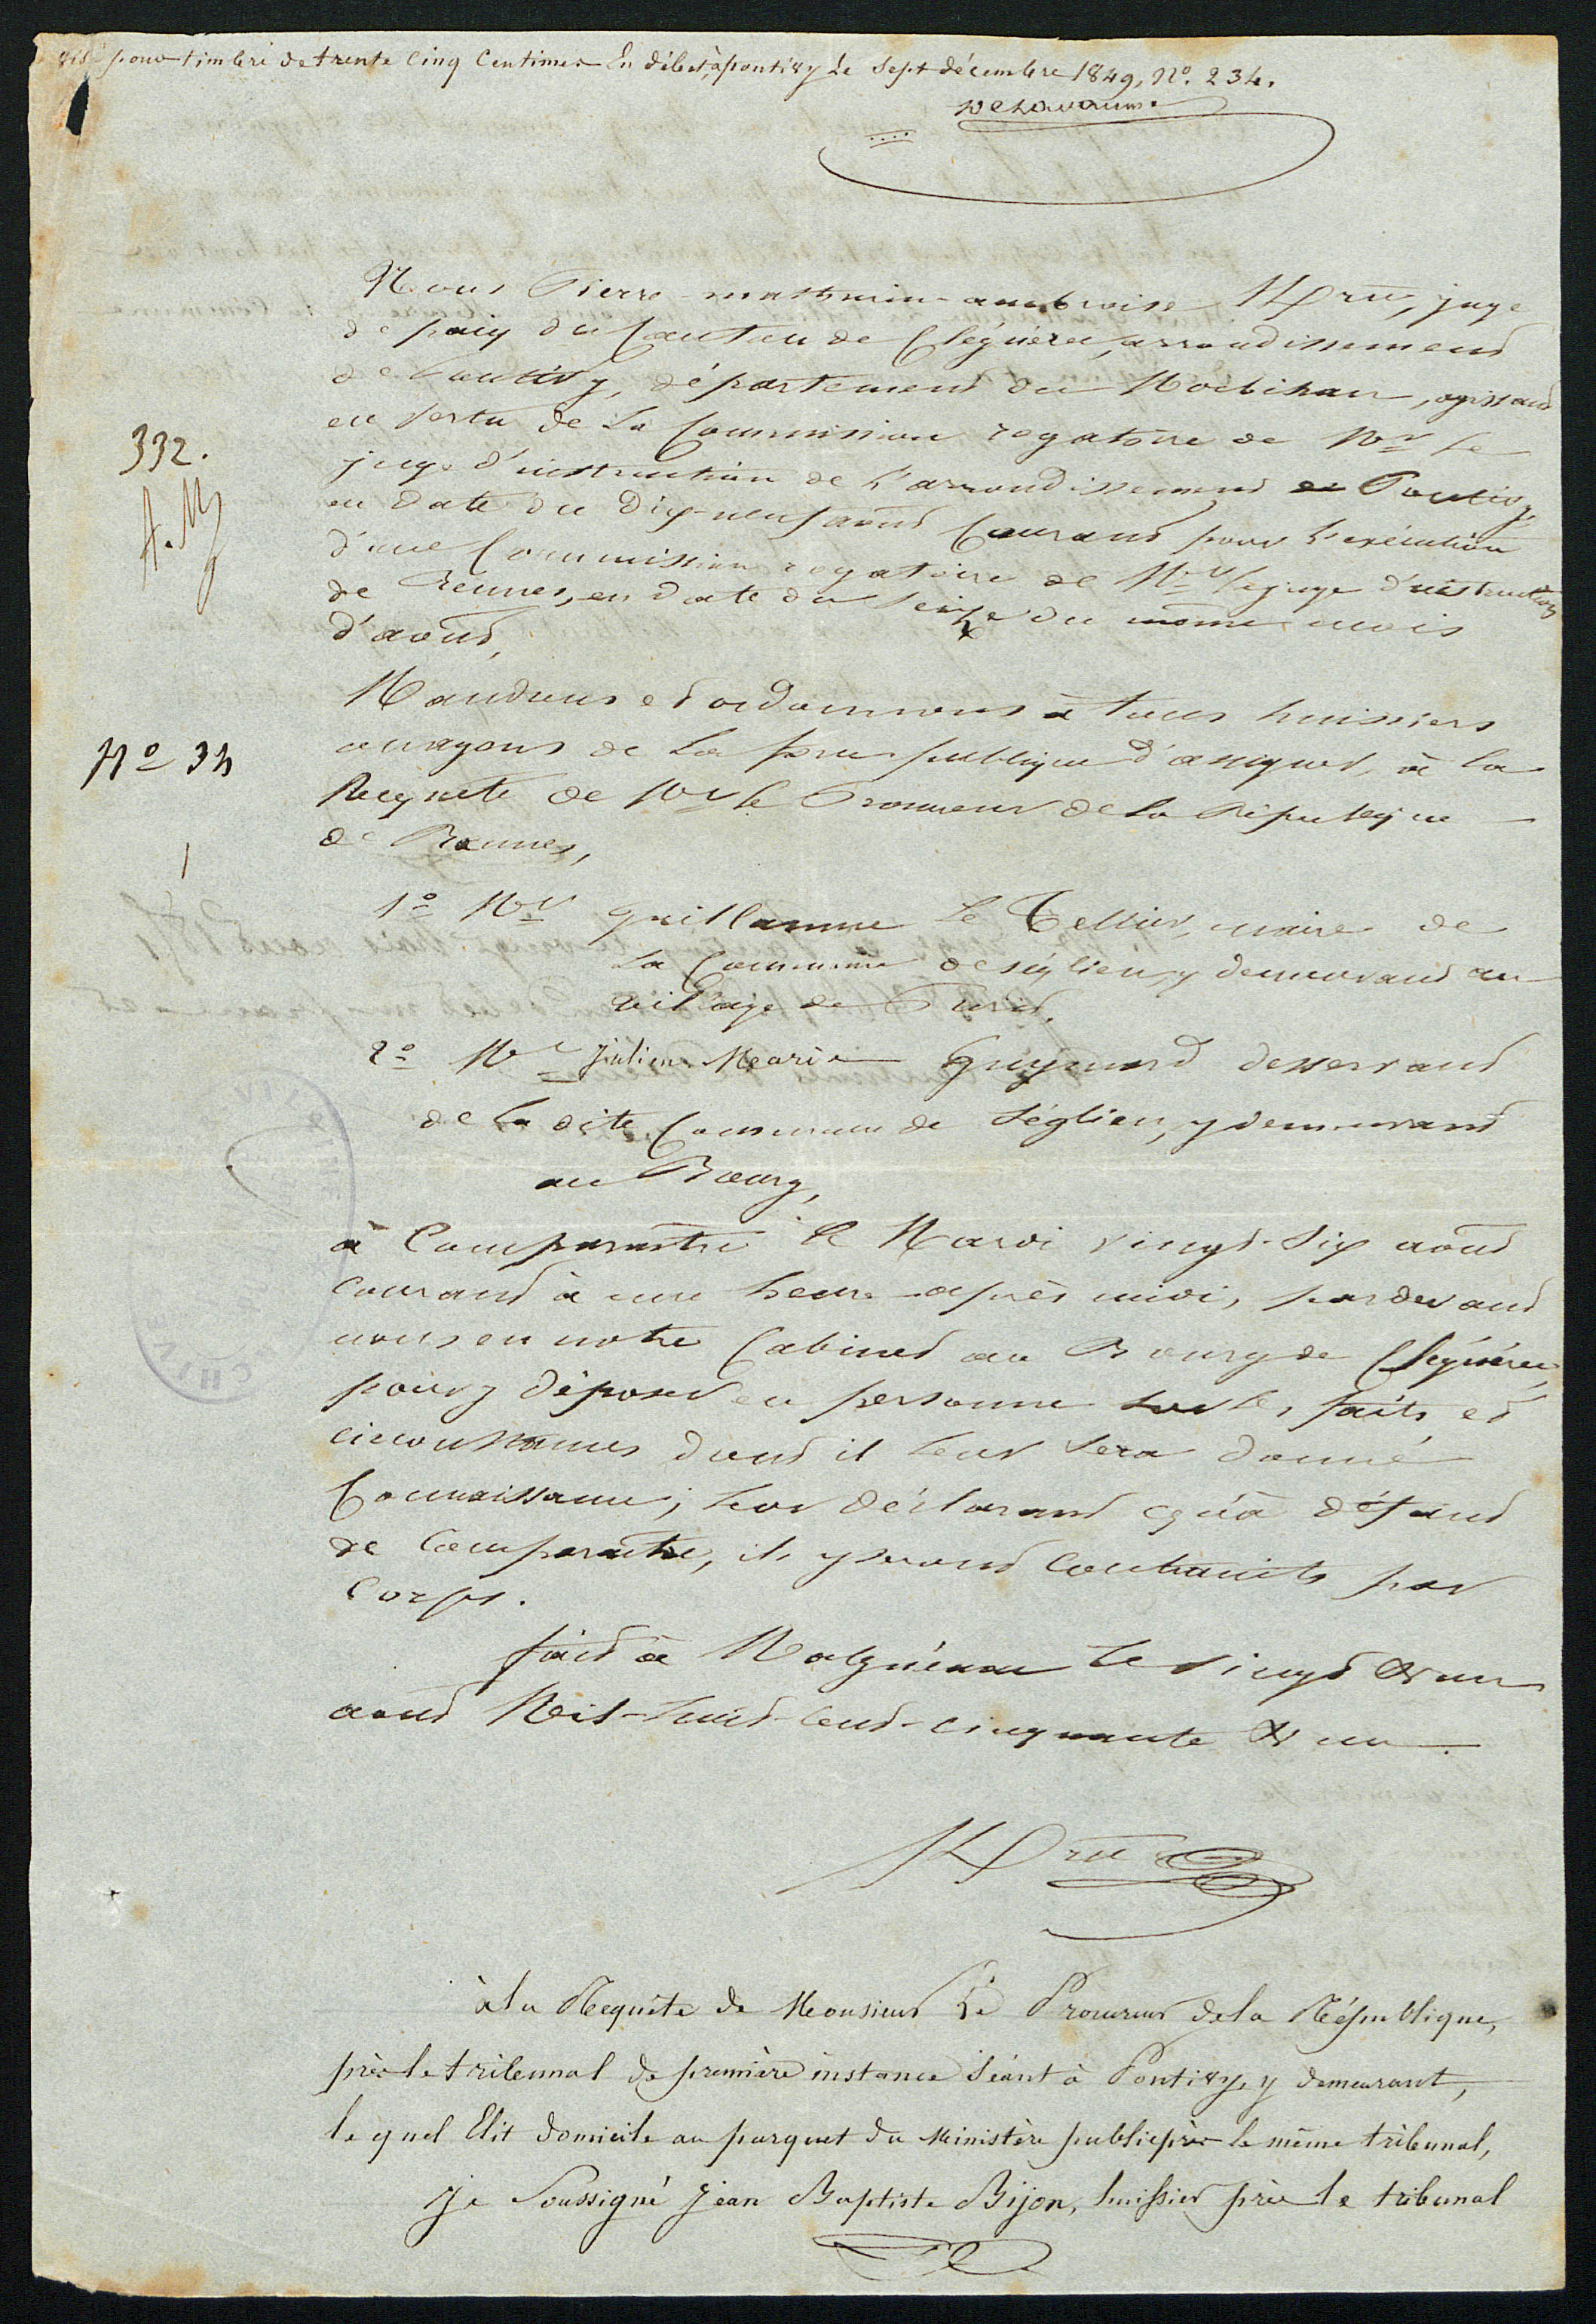 visé pour timbre de trente cinq Centimes En débet, à pontivy Le Sept décembre 1849, N°. 234.
Nous Pierre-mathurin-ambroise juge
de paix du Canton de Cléguérec, arrondissement
de Pontivy, département du Morbihan, agissant
en vertu de la Commission rogatoire de Mr le
juge d'instruction de l'arrondissement de Pontivy,
en date du Dix-neuf août Courant pour l'exécution
d'une Commission rogatoire de Mr le juge d'instruction
de Rennes, en date du seize du même mois
d'août,
332.
A.M
Mandons et ordonnons à tous huissiers
ou agens de la force publique d'assigner, à la
N° 34
Requête de Mr le Procureur de la République
de Rennes,
1
1° Mr Guillaume Le Tellier, maire de
la Commune de séglien, y demeurant au
village de
2° Mr Julien Marie desservant
de la dite Commune de Séglien, y demeurant
au Bourg,
à Comparaitre le Mardi vingt-six août
courant à une heure après midi, pardevant
nous en notre Cabinet au Bourg de Cléguérec,
pour y déposer en personne sur les faits et
circonstances dont il leur sera donné
Connaissance; leur déclarant qu'à défaut
de Comparaitre, ils y seront contraints par
Corps.
fait à Malguénac le vingt & un
août Mil-huit-cent-cinquante & un.
à la Requête de Monsieur Le Procureur de la République,
près le tribunal de première instance Séant à Pontivy, y demeurant,
lequel Elit domicile au parquet du Ministère public près le même tribunal,
Je Soussigné Jean Baptiste Bijon, huissier près le tribunal